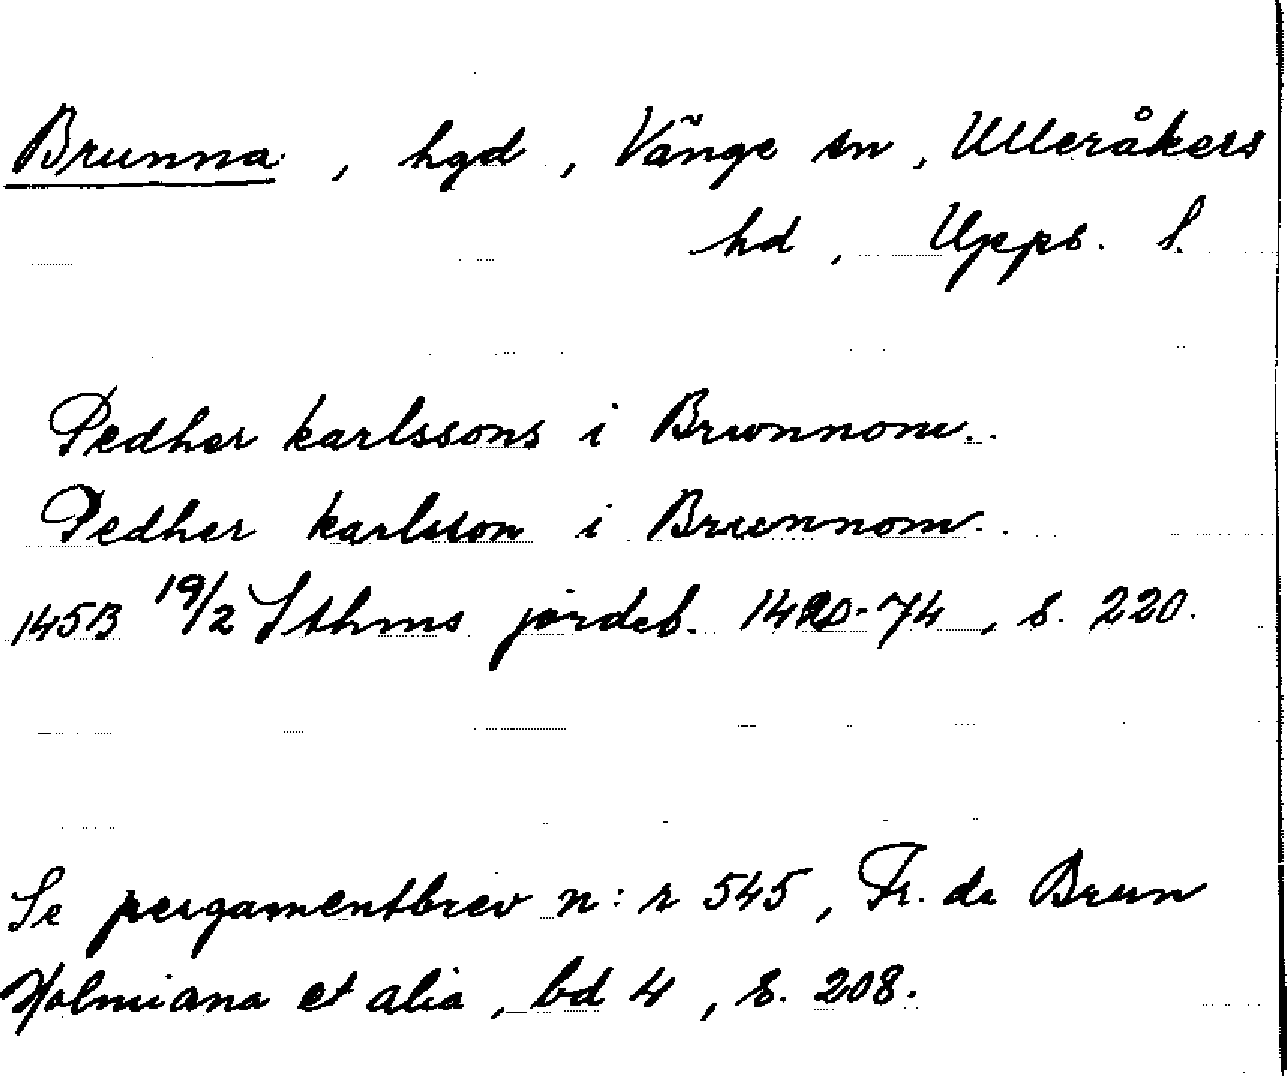 Brunna, hgd, Vänge sn, Ulleråkers
hd, Upps. l.
Pedher karlssons i Brwnnom.
Pedher karlsson i Brunnom.
1453 19/2 Sthms jordeb. 1420-74, s. 220.
Se pergamentbrev n:r 545, Fr. de Brun
Holmiana et alia, bd 4, s. 208.